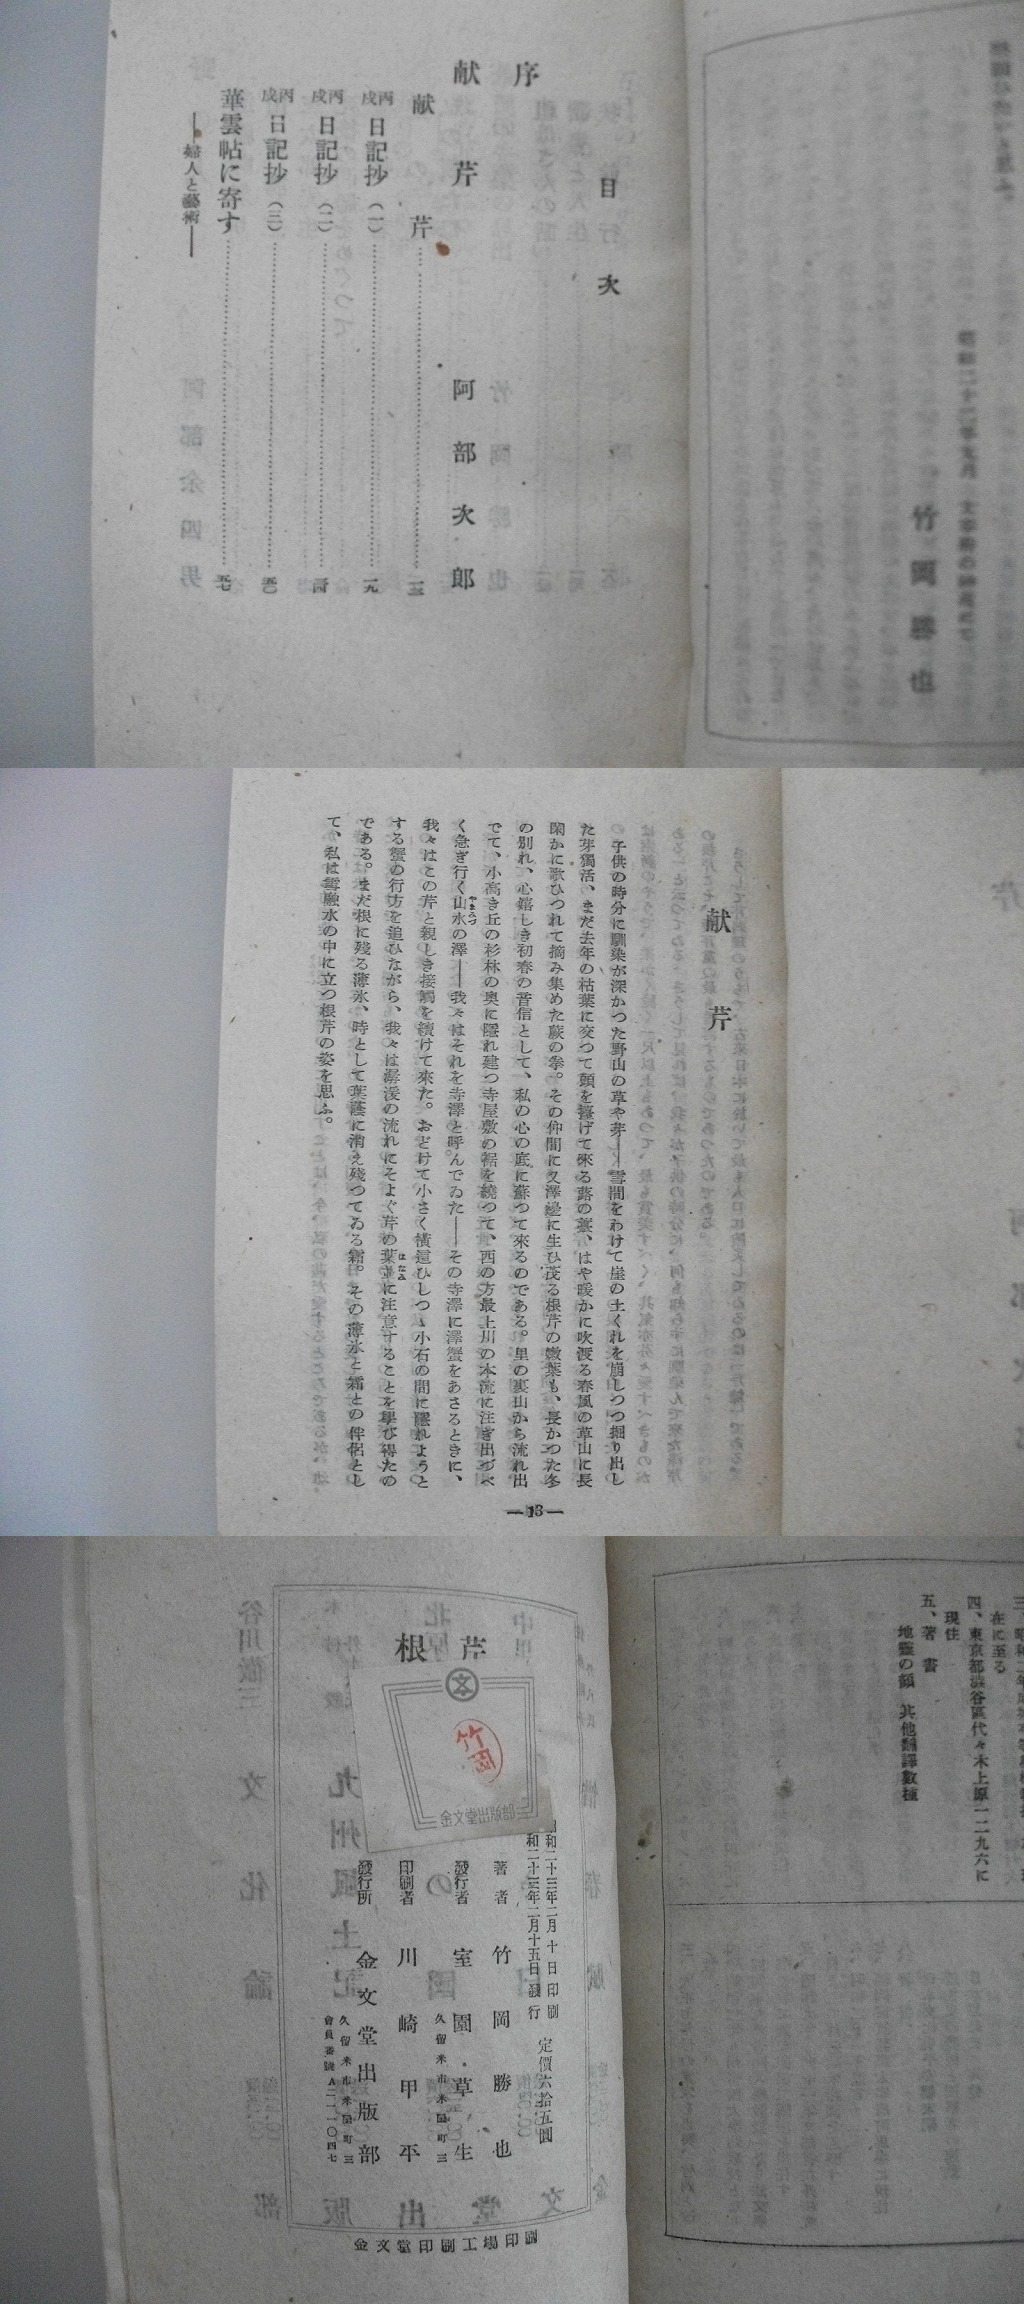 竹岡勝也
目次
序
献芹 阿部次郎
献芹……一三
丙戌日記抄（一）……一九
丙戌日記抄（二）……
丙戌日記抄（三）……
華雲帖に寄す……
――婦人と藝術――
献芹
子供の時分に馴染が深かつた野山の草や芽――雪間をわけて崖の土くれを崩しつつ掘り出し
た芽獨活、まだ去年の枯葉に交つて頭を擡げて來る蕗の薹、はや暖かに吹渡る春風の草山に長
閑かに歌ひつれて摘み集めた蕨の拳。その仲間に又澤邊に生ひ茂る根芹の嫩葉も、長かつた冬
の別れ、心嬉しき初春の音信として、私の心の底に蘇つて來るのである。里の裏山から流れ出
でて、小高き丘の杉林の奥に隱れ建つ寺屋敷の裾を繞つて、西の方最上川の本流に注ぎ出づべ
く急ぎ行く山水の澤――我々はそれを寺澤と呼んでゐた――その寺澤に澤蟹をあさるときに、
我々はこの芹と親しき接觸を續けて來た。おどけて小さく横這ひしつつ小石の間に隱れようと
する蟹の行方を追ひながら、我々は潺湲の流れにそよぐ芹の葉並に注意することを學び得たの
である。まだ根に殘る薄氷、時として葉蔭に消え殘つてゐる霜。その薄氷と霜との伴侶とし
て、私は雪融水の中に立つ根芹の姿を思ふ。
―13―
在に至る
四、現住
東京都澁谷區代々木上原一二九六に
五、著書
地靈の顔 其他飜譯數種
根芹
文
竹岡
金文堂出版部
昭和二十三年二月十日印刷
昭和二十三年二月十五日發行
定價六拾五圓
著者 竹岡勝也
發行者 室園草生
久留米市米屋町三
印刷者 川崎甲平
發行所 金文堂出版部
久留米市米屋町三
會員番號A二一一〇四七
金文堂印刷工場印刷